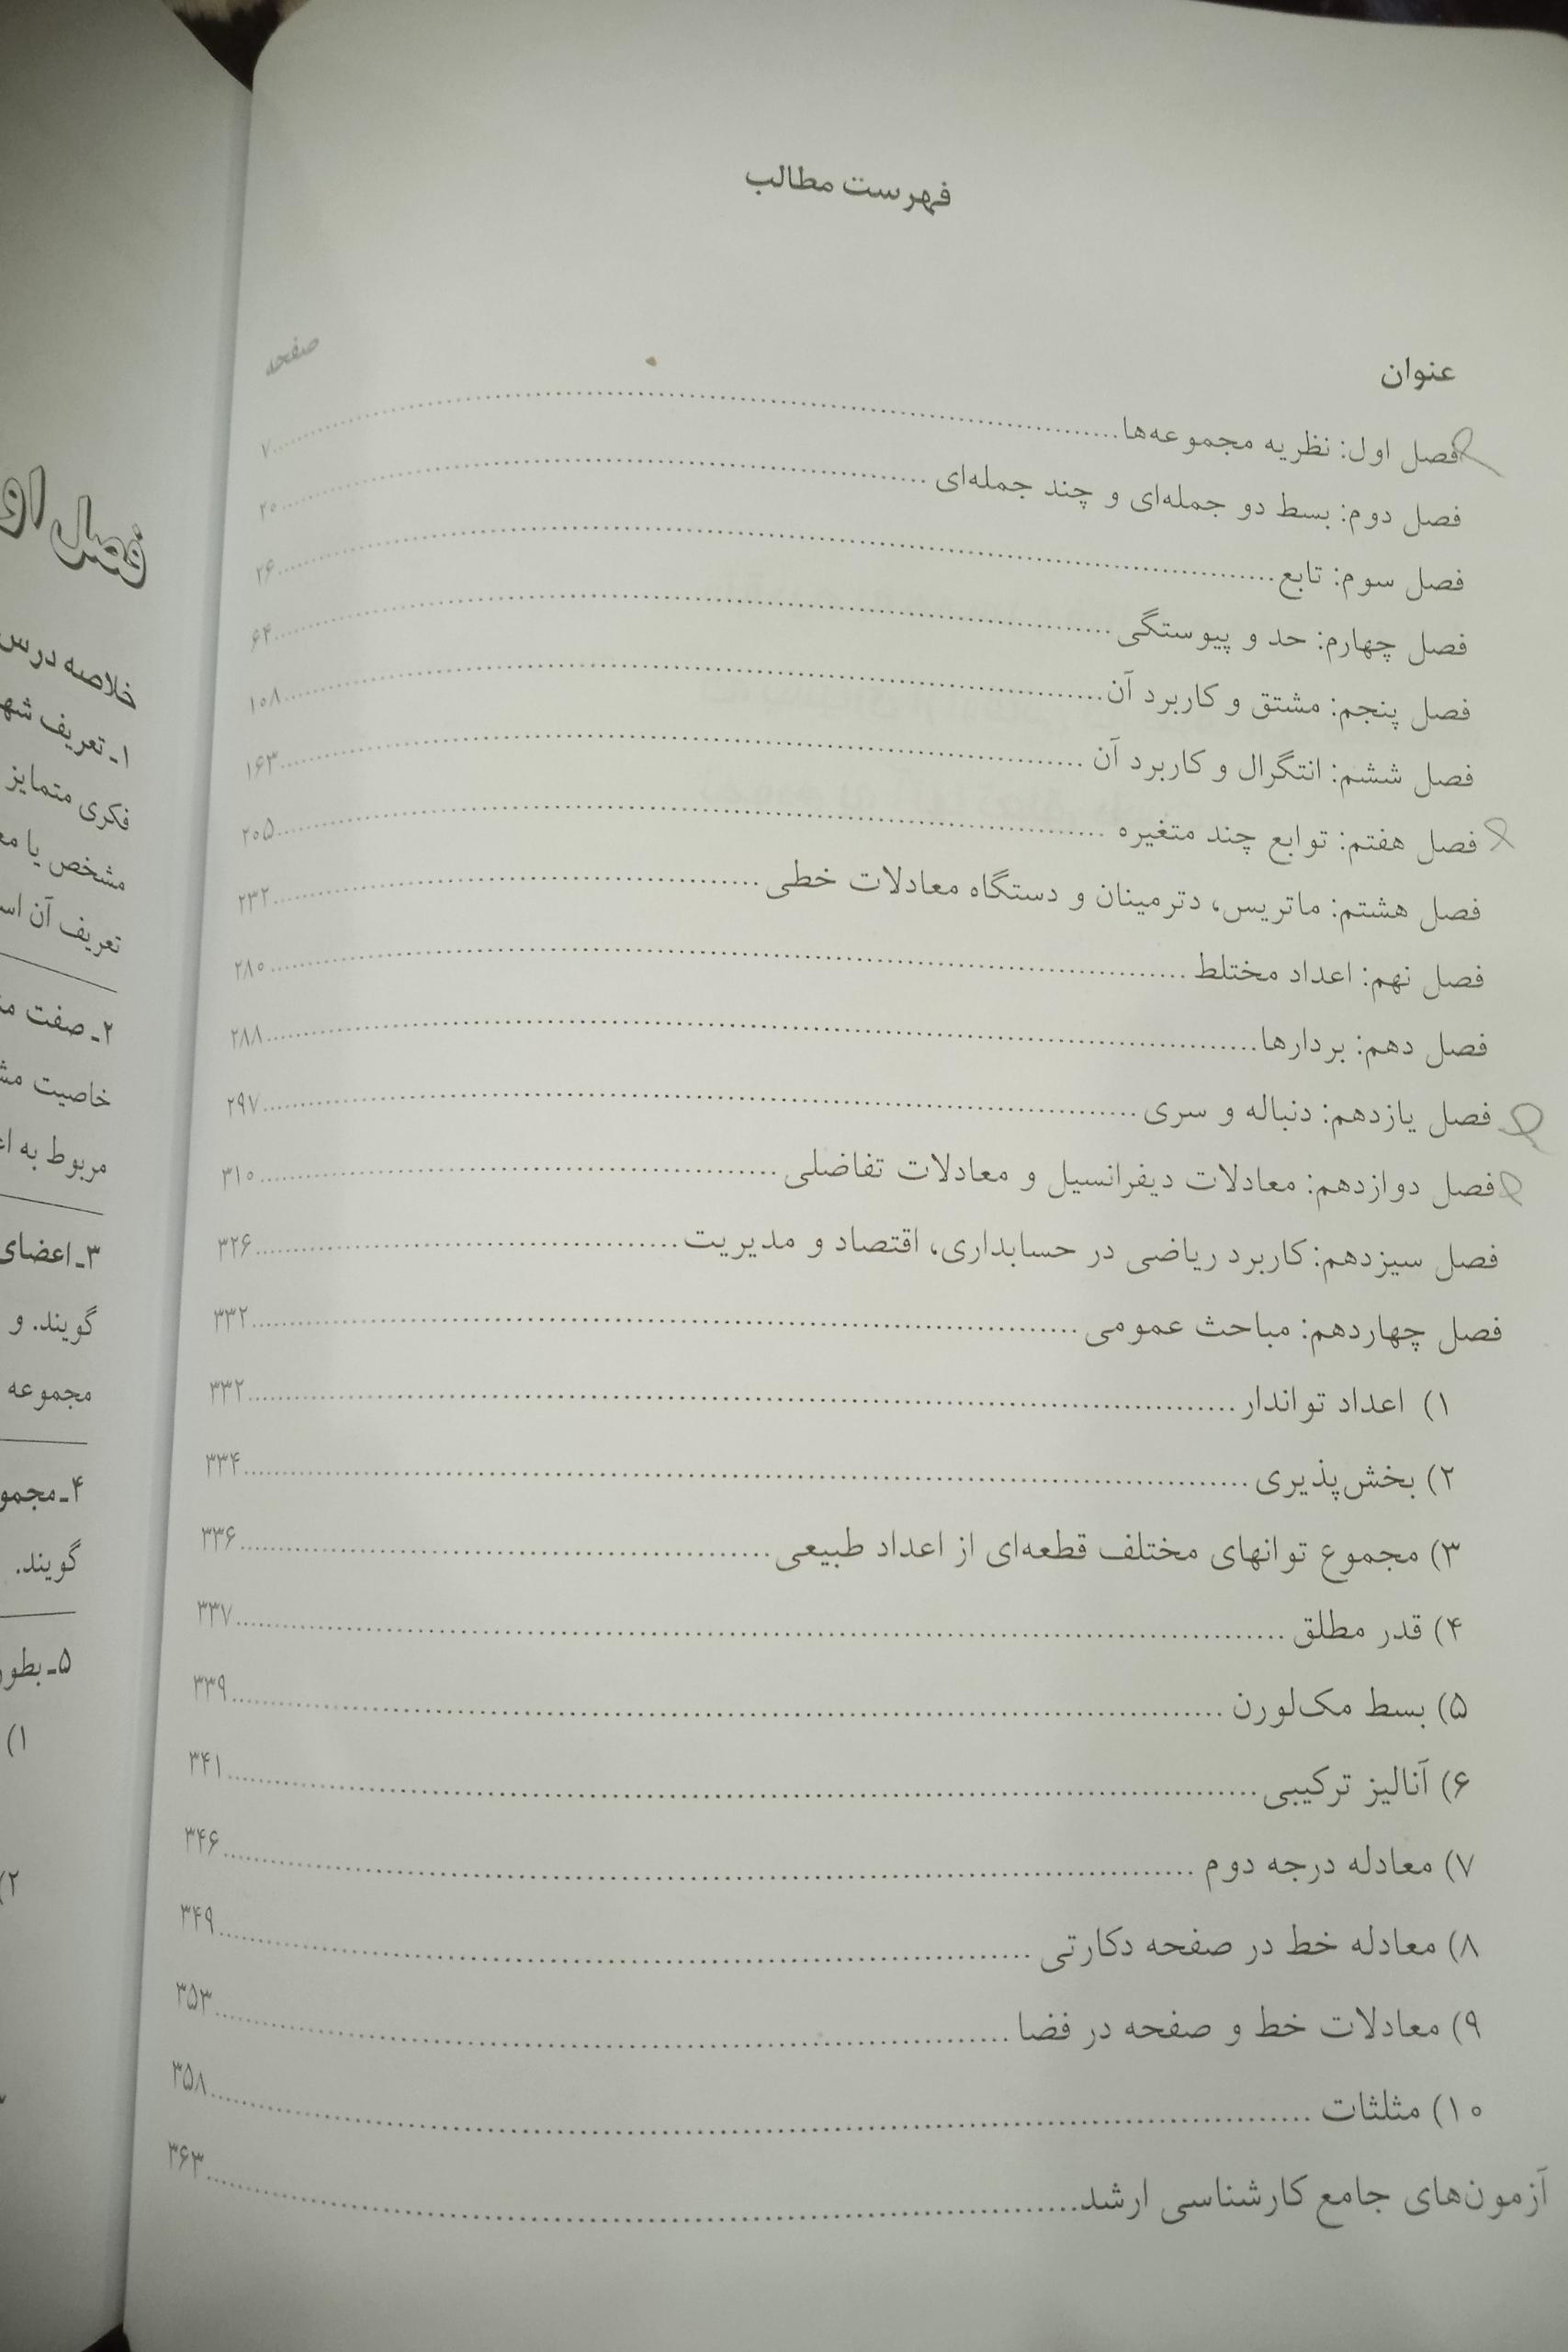 فهرست مطالب
عنوان
صفحه
فصل اول: نظریه مجموعه‌ها........۷
فصل دوم: بسط دو جمله‌ای و چند جمله‌ای........۲۰
فصل سوم: تابع........۲۶
فصل چهارم: حد و پیوستگی........۶۴
فصل پنجم: مشتق و کاربرد آن........۱۰۸
فصل ششم: انتگرال و کاربرد آن........۱۶۳
فصل هفتم: توابع چند متغیره........۲۰۵
فصل هشتم: ماتریس، دترمینان و دستگاه معادلات خطی........۲۳۲
فصل نهم: اعداد مختلط........۲۸۰
فصل دهم: بردارها........۲۸۸
فصل یازدهم: دنباله و سری........۲۹۷
فصل دوازدهم: معادلات دیفرانسیل و معادلات تفاضلی........۳۱۰
فصل سیزدهم: کاربرد ریاضی در حسابداری، اقتصاد و مدیریت........۳۲۶
فصل چهاردهم: مباحث عمومی........۳۳۲
۱) اعداد تواندار........۳۳۲
۲) بخش‌پذیری........۳۳۴
۳) مجموع توانهای مختلف قطعه‌ای از اعداد طبیعی........۳۳۶
۴) قدر مطلق........۳۳۷
۵) بسط مک‌لورن........۳۳۹
۶) آنالیز ترکیبی........۳۴۱
۷) معادله درجه دوم........۳۴۶
۸) معادله خط در صفحه دکارتی........۳۴۹
۹) معادلات خط و صفحه در فضا........۳۵۳
۱۰) مثلثات........۳۵۸
آزمون‌های جامع کارشناسی ارشد........۳۶۳
فصل
خلاصه درس
۱ـ تعریف
فکری متمایز
مشخص یا
تعریف آن
۲ـ صفت
خاصیت
مربوط به
۳ـ اعضای
گویند. و
مجموعه
۴ـ
گویند.
۵ـ
۱)
۲)